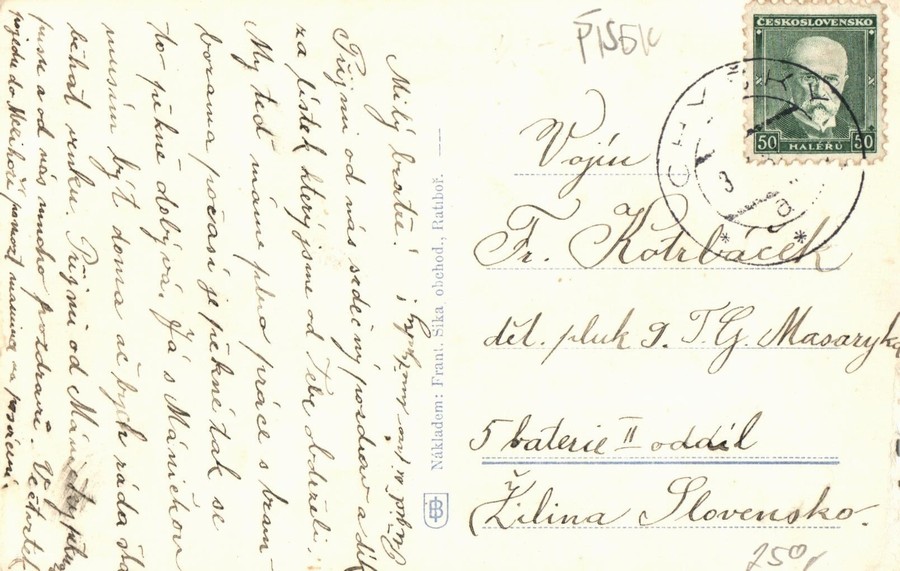 Milý bratře!
Přijmi od nás srdečný pozdrav a dík
za lístek který jsme od Tebe obdrželi.
My teď máme plno práce s bram-
borama počasí je pěkné tak se
to pěkně dobývá. Já s Máničkou
musím být doma ač bych ráda
běhat venku. Přijmi od Máni
pusu a od nás mnoho pozdravů. Ve čtvrtek
pojedu do maminee na posvícení
Nákladem: Frant. Šika, obchod., Ratiboř.
PÍSEK
ČESKOSLOVENSKO
50 HALÉŘŮ 50
CHL
3
Vojín
Fr. Kotrbáček
děl. pluk 9. T. G. Masaryka
5 baterie II oddíl
Žilina Slovensko.
250,